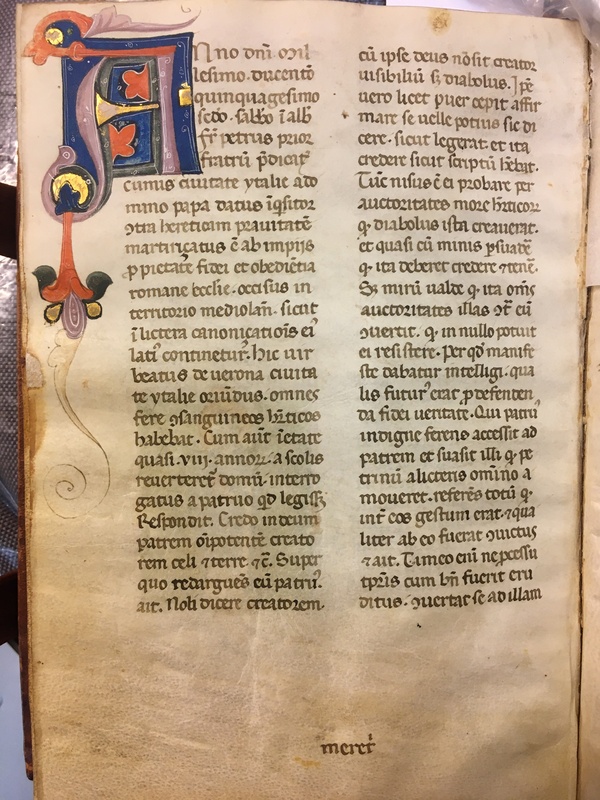 Anno dñi. mil
lesimo. ducentõ
quinquagesimo
scd̃o. sabb̃o ĩ alb̃
fr̃ petrus prior
fratrũ p̃dicat᷑
cumis ciuitate ytalie a do
mino papa datus ĩq̃sitor
ꝯtra hereticam prauitatẽ
martiriçatus ẽ ab impijs
ꝓ pietate fidei et obediẽtia
romane ecclie. occisus in
territorio mediolañ. sicut
ĩ lictera canonicatiõis eiꝰ
latiꝰ continetur. hic uir
beatus de uerona ciuita
te ytalie oriũdus. omnes
fere ꝯsanguineos hr̃ticos
habebat. Cum aũt ĩ etate
quasi .viii. annoꝝ. a scolis
reuerteret᷑ domũ. interro
gatus a patruo qd̃ legiss3
Respondit. Credo in deum
patrem oĩpotentẽ creato
rem celi ⁊ terre. ⁊c̃. Super
quo redarguẽs eũ patruꝰ.
ait. Noli dicere creatorem.
cũ ipse deus nõ sit creator
uisibiliũ s; diabolus. pẽ
uero licet puer cepit affir
mare se uelle potius sic di
cere. sicut legerat. et ita
credere sicut scriptũ hẽbat.
Tũc nisus ẽ ei probare per
auctoritates more hr̃ticoꝝ
ꝙ diabolus ista creauerat.
et quasi cũ minis p̱suadẽ
ꝙ ita deberet credere ⁊ tenẽ.
S; mirũ ualde ꝙ ita om̃s
auctoritates illas ꝯͭ eũ
ꝯuertit. ꝙ in nullo potuit
ei resistere. Per qd̃ manife
ste dabatur intelligi. qua
lis futurꝰ erat ꝓ defenden
da fidei ueritate. Qui patruꝰ
indigne ferens accessit ad
patrem et suasit illi ꝙ pe
trinũ a licteris omĩno a
moueret. referẽs totũ ꝙ
int᷑ eos gestum erat. ⁊ qua
liter ab eo fuerat ꝯuictus
⁊ ait. Timeo eni ne p̱cessu
tp̃ris cum bñ fuerit eru
ditus. ꝯuertat se ad illam
meret᷑